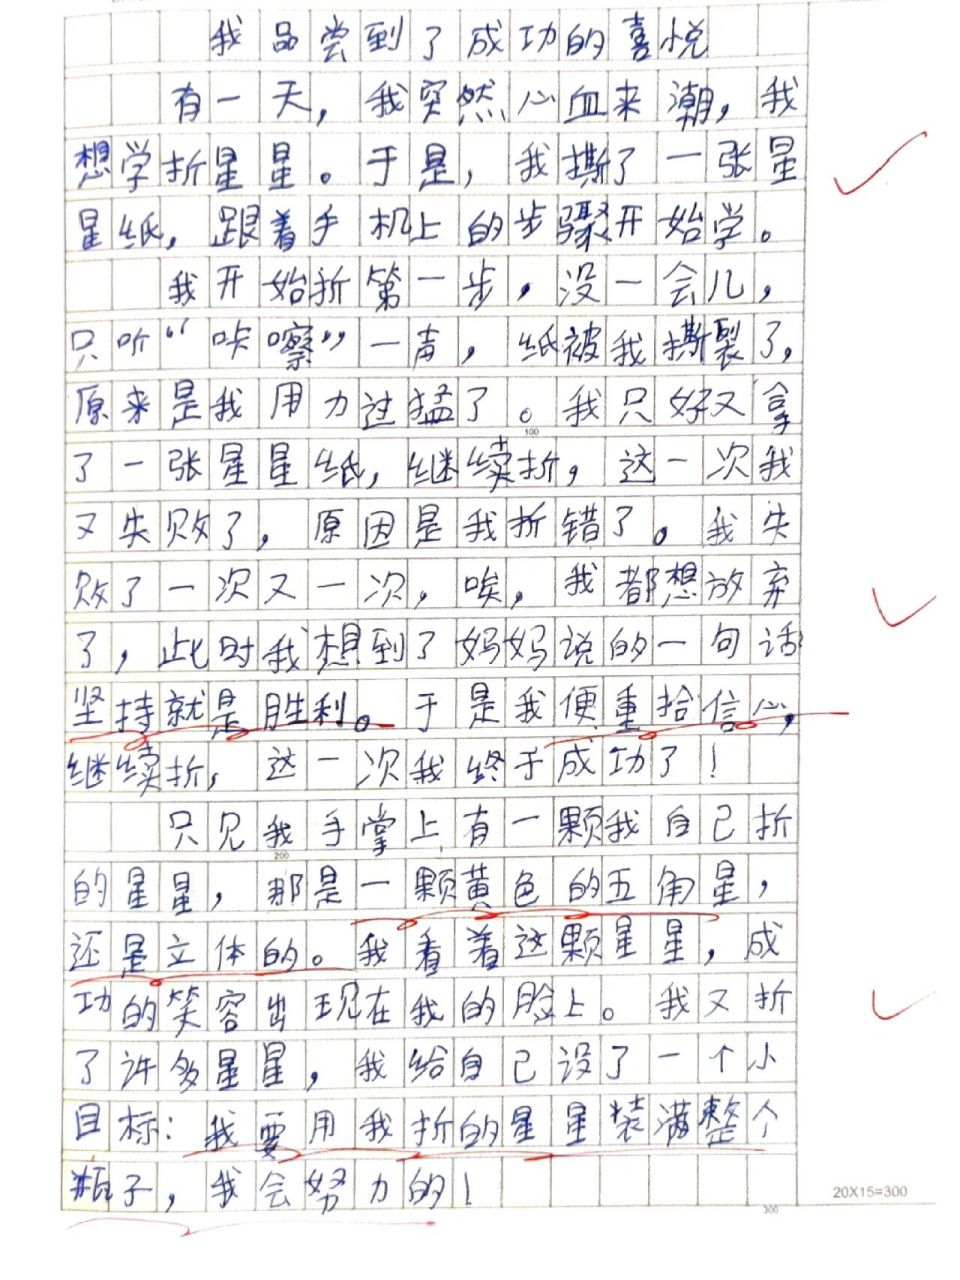 我品尝到了成功的喜悦
有一天，我突然心血来潮，我
想学折星星。于是，我撕了一张星
星纸，跟着手机上的步骤开始学。
我开始折第一步，没一会儿，
只听“咔嚓”一声，纸被我撕裂了，
原来是我用力过猛了。我只好又拿
100
了一张星星纸，继续折，这一次我
又失败了，原因是我折错了。我失
败了一次又一次，唉，我都想放弃
了，此时我想到了妈妈说的一句话
坚持就是胜利。于是我便重拾信心，
继续折，这一次我终于成功了！
只见我手掌上有一颗我自己折
200
的星星，那是一颗黄色的五角星，
还是立体的。我看着这颗星星，成
功的笑容出现在我的脸上。我又折
了许多星星，我给自己设了一个小
目标：我要用我折的星星装满整个
瓶子，我会努力的！
20X15=300
300